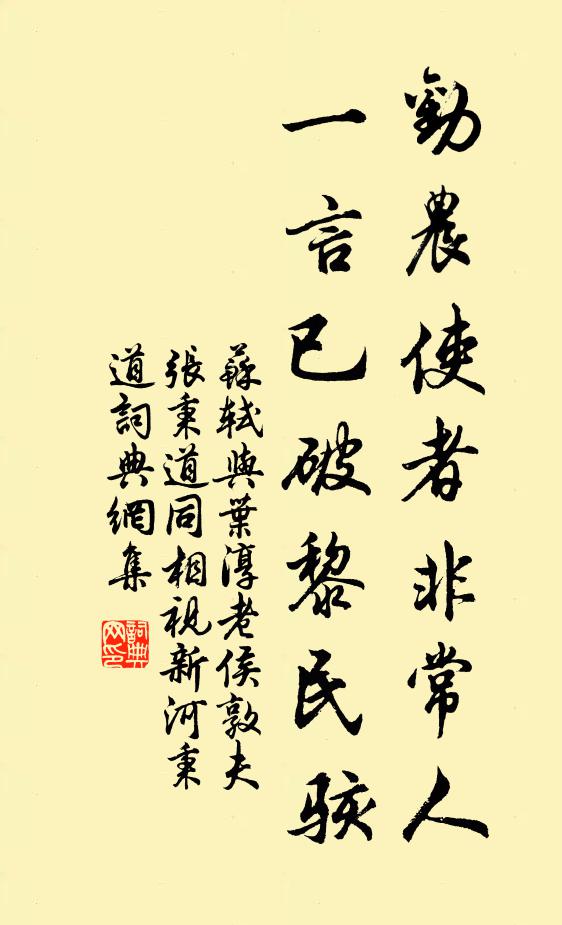 勸農使者非常人
一言已破黎民駭
蘇軾與葉淳老侯敦夫
張秉道同相視新河秉
道詞典網集
詞典
网印